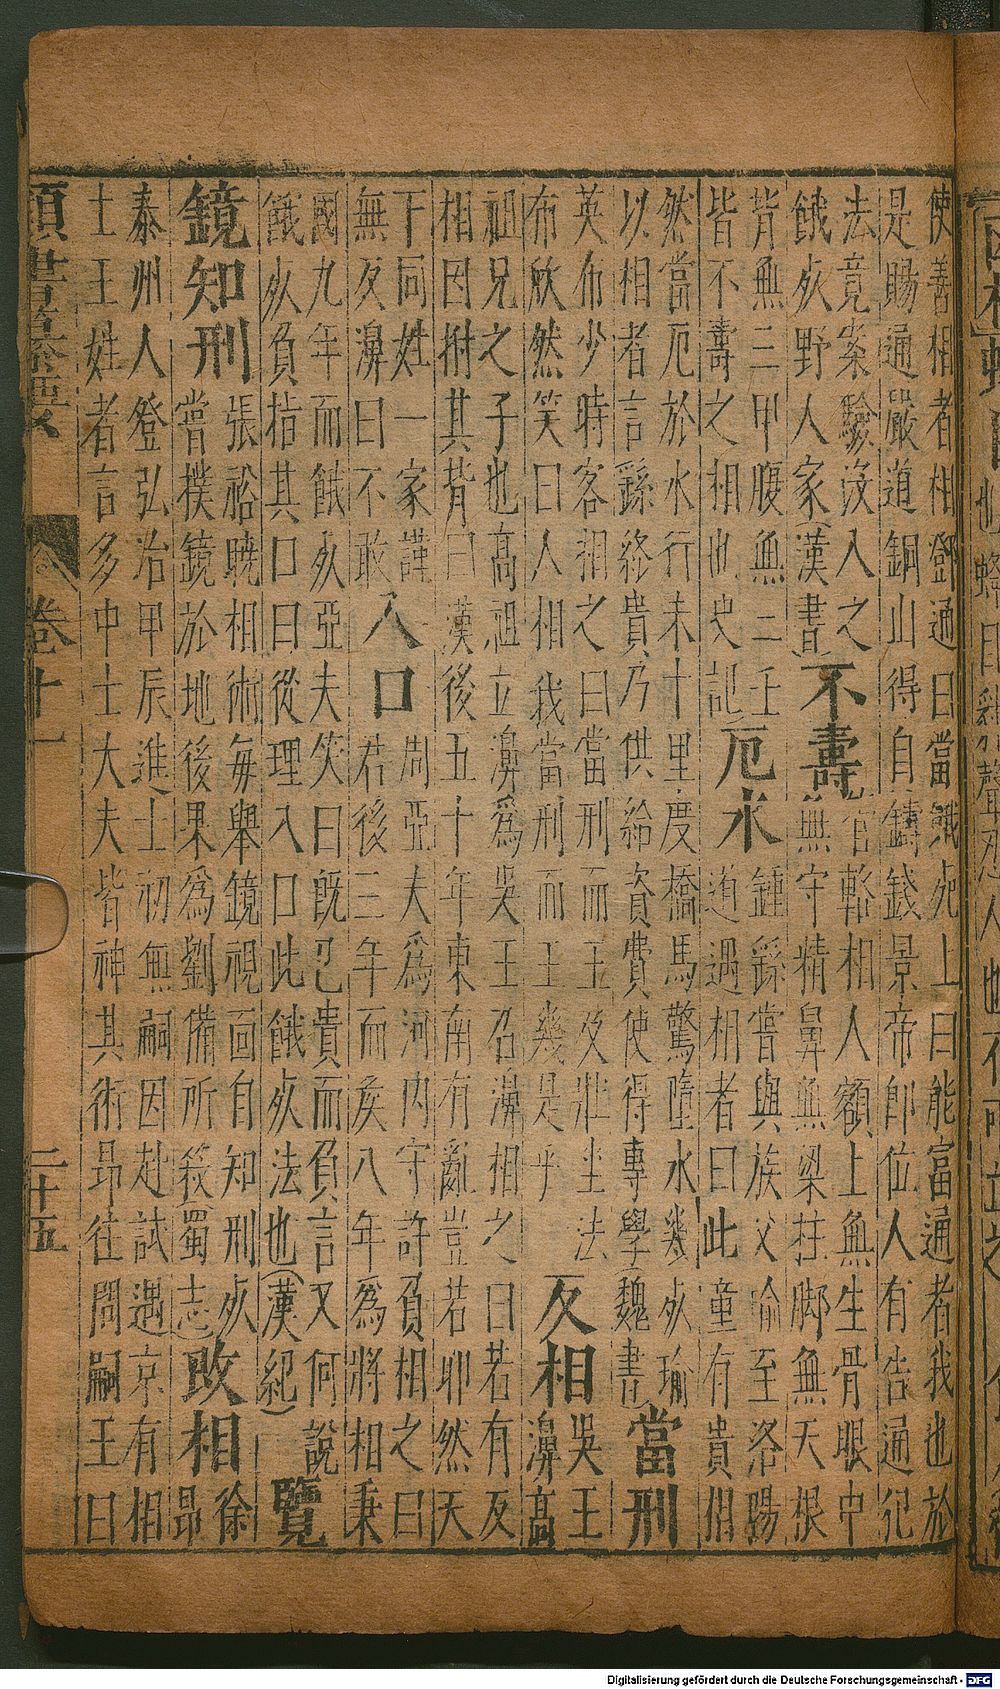 使善相者相鄧通曰當餓死上曰能富通者我也於
是賜通嚴道銅山得自鑄錢景帝即位人有告通犯
法竟案驗沒入之
餓死野人家(漢書)
不壽
官輅相人額上無生骨眼中
無守精鼻無梁柱脚無天根
背無三甲腹無二壬
皆不壽之相也史記
厄水
鍾繇嘗與族父瑜至洛陽
道遇相者曰此童有貴相
然當厄於水行未十里度橋馬驚墮水幾死瑜
以相者言繇終貴乃供給資費使得專學(魏書)
當刑
英布少時客相之曰當刑而王及壯坐法
布欣然笑曰人相我當刑而王幾是乎
反相
吳王
濞高
祖兄之子也高祖立濞為吳王召濞相之曰若有反
相因拊其背曰漢後五十年東南有亂豈若耶然天
下同姓一家謹
無反濞曰不敢
入口
周亞夫為河內守許負相之曰
君後三年而侯八年為將相秉
國九年而餓死亞夫笑曰既已貴而負言又何說
餓死負指其口曰從理入口此餓死法也(漢紀)
覽
鏡知刑
張裕曉相術每舉鏡視面自知刑死
嘗撲鏡於地後果為劉備所殺(蜀志)
改相
徐
昂
泰州人登弘治甲辰進士初無嗣因赴試遇京有相
士王姓者言多中士大夫皆神其術昂往問嗣王曰
類書纂要 卷十一 二十五
Digitalisierung gefördert durch die Deutsche Forschungsgemeinschaft - DFG